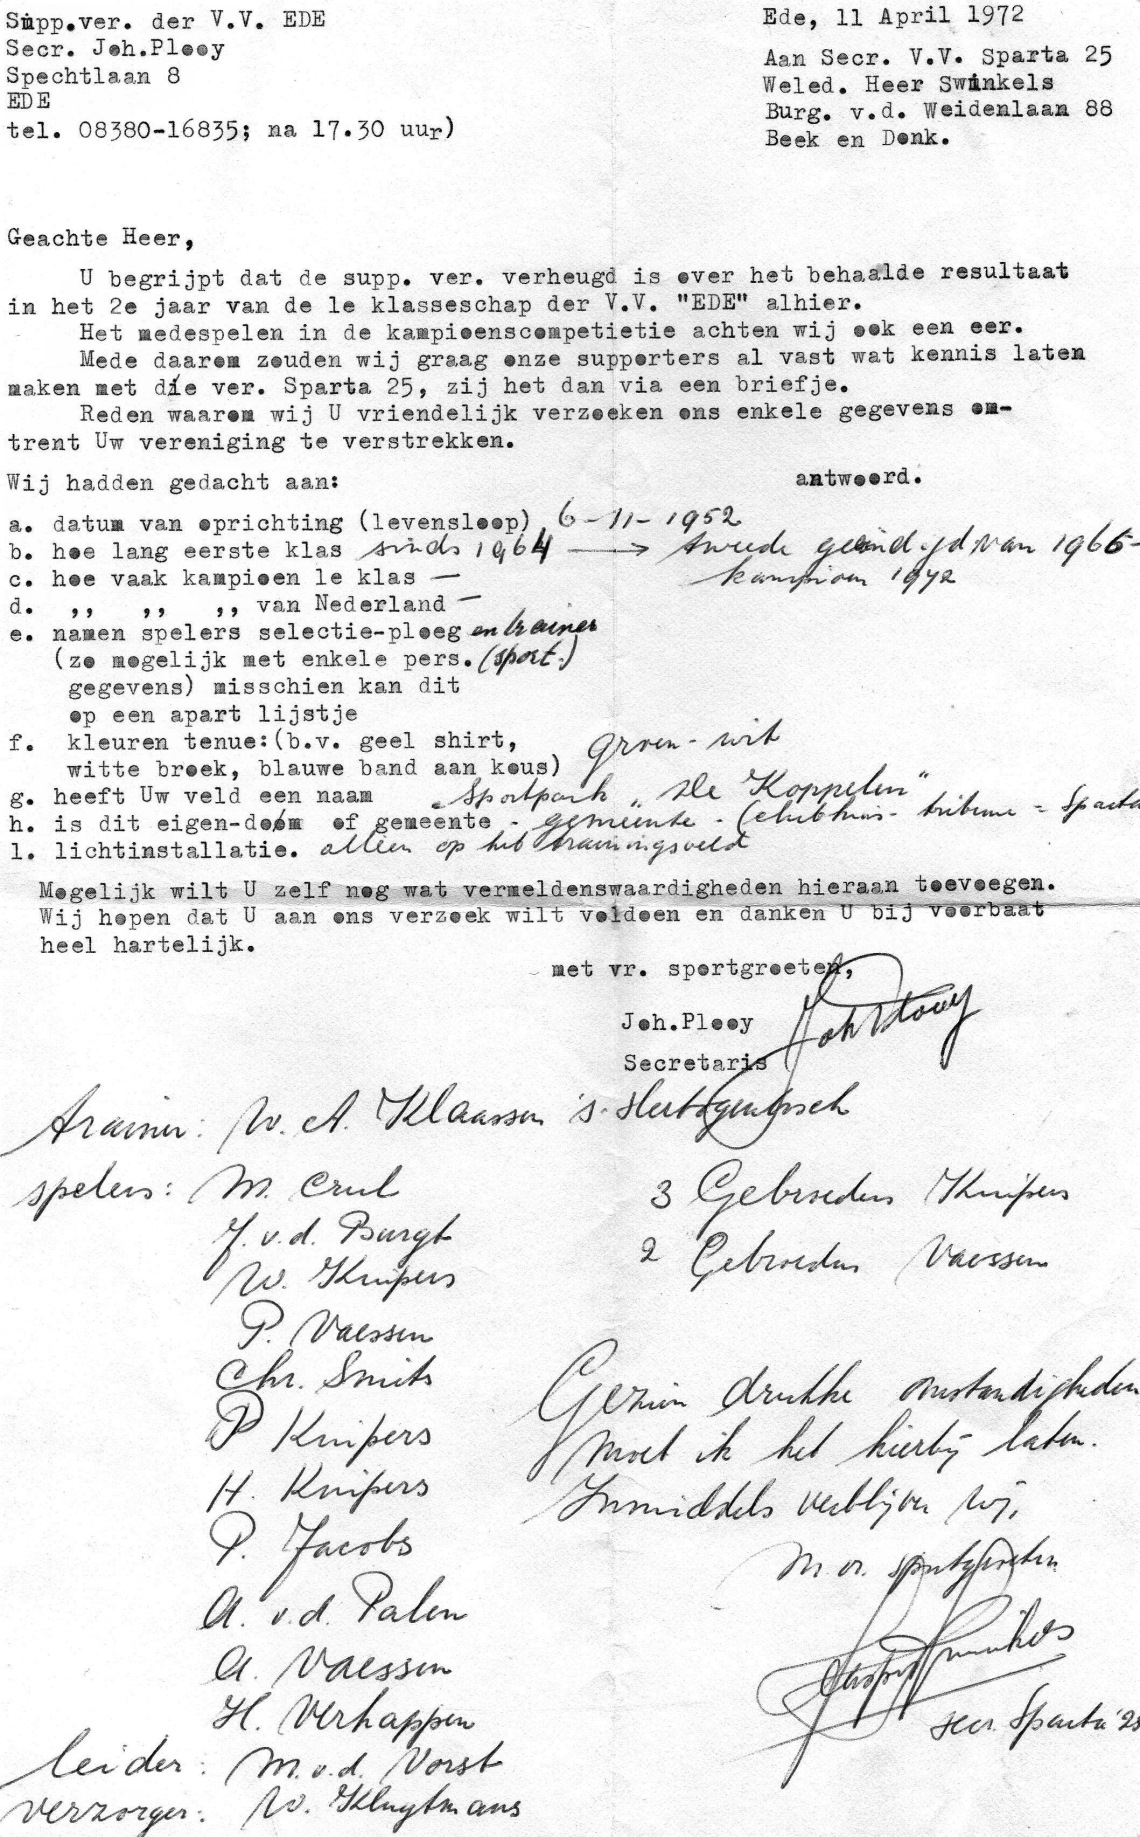 Supp.ver. der V.V. EDE
Secr. Joh.Plooy
Spechtlaan 8
EDE
tel. 08380-16835; na 17.30 uur)
Ede, 11 April 1972
Aan Secr. V.V. Sparta 25
Weled. Heer Swinkels
Burg. v.d. Weidenlaan 88
Beek en Donk.
Geachte Heer,
U begrijpt dat de supp. ver. verheugd is over het behaalde resultaat
in het 2e jaar van de 1e klasseschap der V.V. "EDE" alhier.
Het medespelen in de kampioenscompetietie achten wij ook een eer.
Mede daarom zouden wij graag onze supporters al vast wat kennis laten
maken met die ver. Sparta 25, zij het dan via een briefje.
Reden waarom wij U vriendelijk verzoeken ons enkele gegevens om-
trent Uw vereniging te verstrekken.
Wij hadden gedacht aan: antwoord.
a. datum van oprichting (levensloop) 6-11-1952
b. hoe lang eerste klas sinds 1964 → tweede 1966-
c. hoe vaak kampioen 1e klas — kampioen 1972
d. ,, ,, ,, van Nederland —
e. namen spelers selectie-ploeg en trainer
(zo mogelijk met enkele pers. (sport.)
gegevens) misschien kan dit
op een apart lijstje
f. kleuren tenue:(b.v. geel shirt, groen-wit
witte broek, blauwe band aan kous)
g. heeft Uw veld een naam Sportpark "De Koppelen"
h. is dit eigen-doom of gemeente - gemeente - (clubhuis- tribune = Sparta
l. lichtinstallatie. alleen op het trainingsveld
Mogelijk wilt U zelf nog wat vermeldenswaardigheden hieraan toevoegen.
Wij hopen dat U aan ons verzoek wilt voldoen en danken U bij voorbaat
heel hartelijk.
met vr. sportgroeten,
Joh.Plooy Joh Plooy
Secretaris
trainer: W. A. Klaassen 's-Hertogenbosch
spelers: M. Crul
J. v.d. Burgt
W. Knipers
P. Vaessen
Chr. Smits
P Knipers
H. Knipers
P. Jacobs
A. v.d. Palen
A. Vaessen
H. Verhappen
leider: M. v.d. Vorst
verzorger: W. Kluytmans
3 Gebroeders Knipers
2 Gebroeders Vaessen
Gezien drukke omstandigheden
moet ik het hierbij laten.
Inmiddels verblijven wij,
m. vr. sportgroeten
Swinkels
secr. Sparta '25